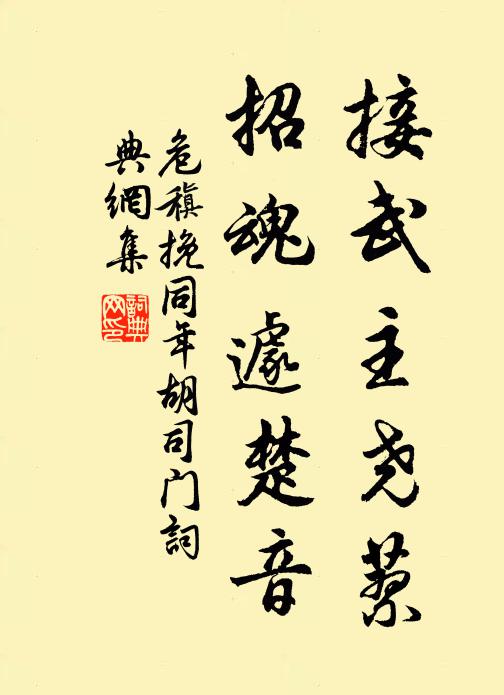 接武主尧蔡
招魂遽楚音
危稹挽同年胡司门詞
典網集
詞典
网印